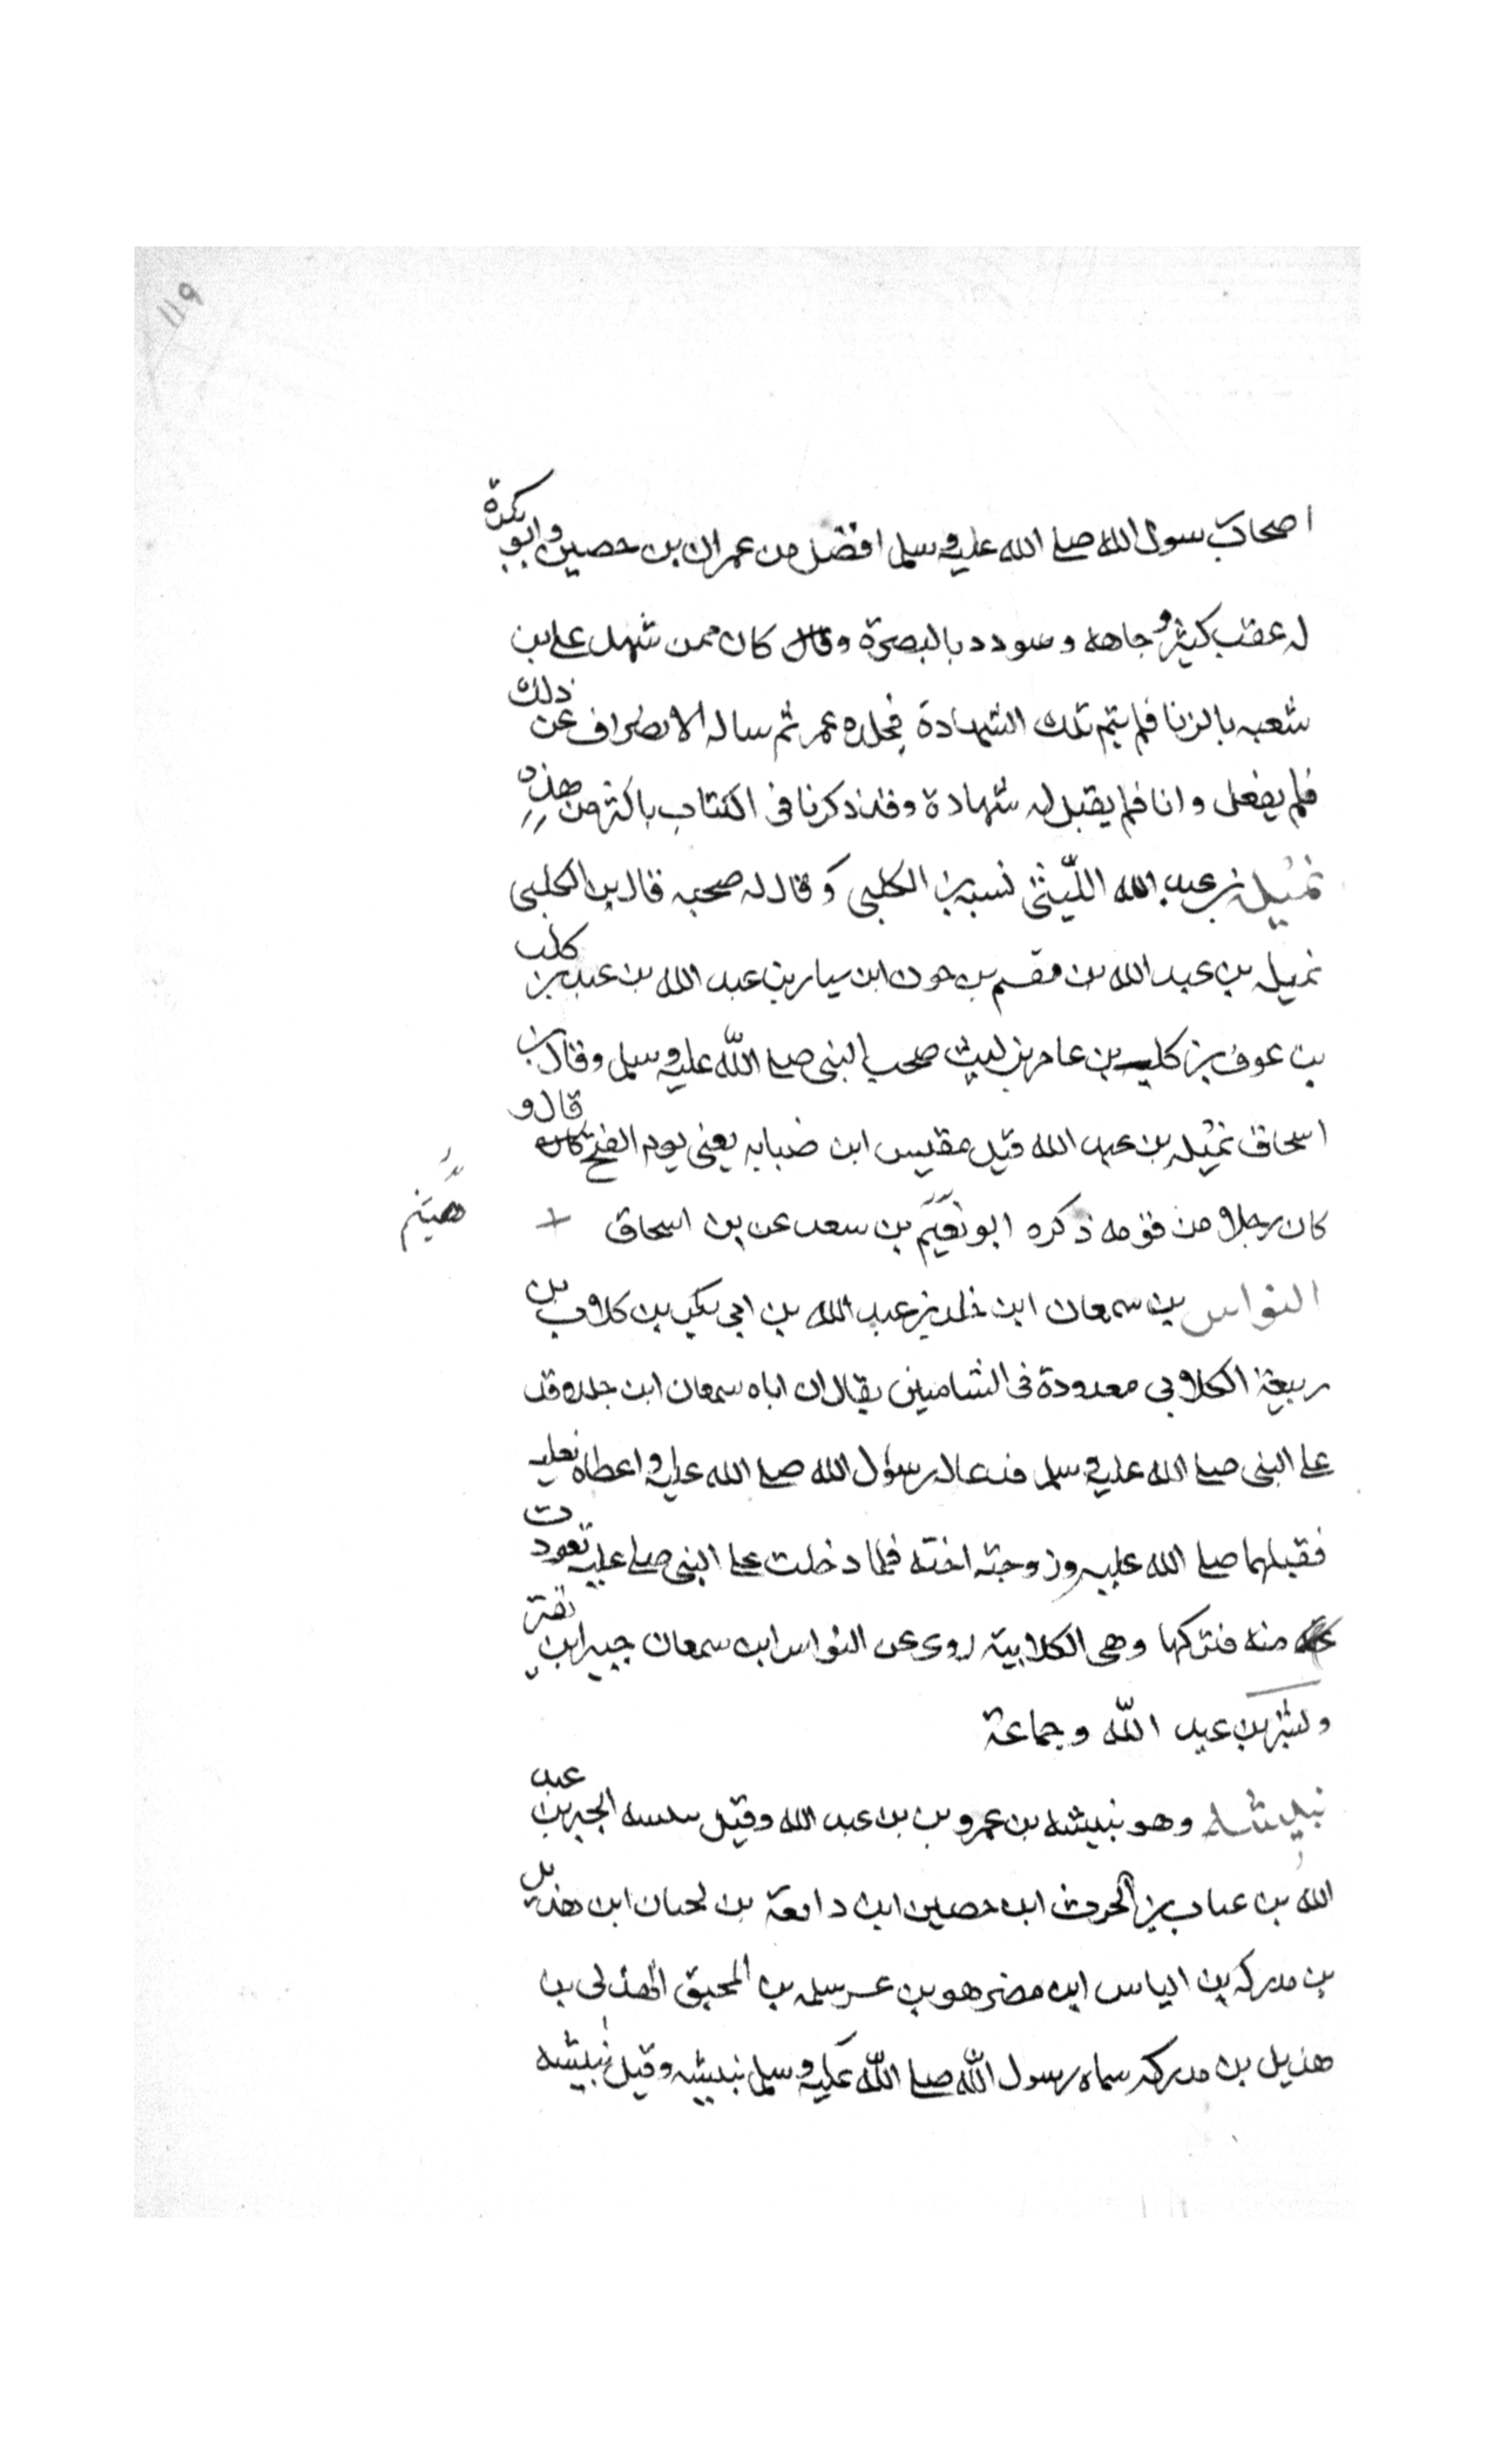 ١١٩
اصحاب رسول الله صلے الله عليه وسلم افضل من عمران بن حصين وابو بكرة
له عقب كثير وجاهه وسودد بالبصرة وكان ممن شهد على بن
شعبه بالزنا فلم يتم تلك الشهادة فجلده عمر ثم ساله الانصراف عن ذلك
فلم يفعل وانا فلم يقبل له شهادة وقد ذكرنا فى الكتاب باكثر من هذه
نميله بن عبد الله الليثى نسبه بن الكلبى وقال له صحبه قال بن الكلبى
نميله بن عبد الله بن مقسم بن حون ابن سيار بن عبد الله بن عبد بن كلب
بن عوف بن كلب بن عامر بن ليث صحب النبى صلے الله عليه وسلم وقال بن
اسحاق نميله بن عبد الله قتل مقيس ابن ضبابه يعنى يوم الفتح قال و
كان رجلا من قومه ذكره ابو نعيم بن سعد عن بن اسحاق
النواس بن سمعان ابن خلد بن عبد الله بن ابى بكر بن كلاب بن
ربيعة الكلابى معدودة فى الشاميين يقال ان اباه سمعان ابن خلد وقد
على النبى صلے الله عليه وسلم فدعا له رسول الله صلے الله عليه واعطاه نعليه
فقبلهما صلے الله عليه وزوجته اخته فلما دخلت على النبى صلے عليه تعودت
منه فتركها وهى الكلابية روى عن النواس ابن سمعان جبير ابن
وبشر بن عبيد الله وجماعة
نبيشه وهو نبيشه بن عمرو بن بن عبد الله وقيل الخير بن عبد
الله بن عتاب بن الحرث ابن حصين ابن دابعة بن لحيان ابن هذيل
بن مدركه بن الياس ابن مضر هو بن عم سلمه بن المحبق الهذلى بن
هذيل بن مدركه سماه رسول الله صلے الله عليه وسلم نبيشه وقيل نبيشه